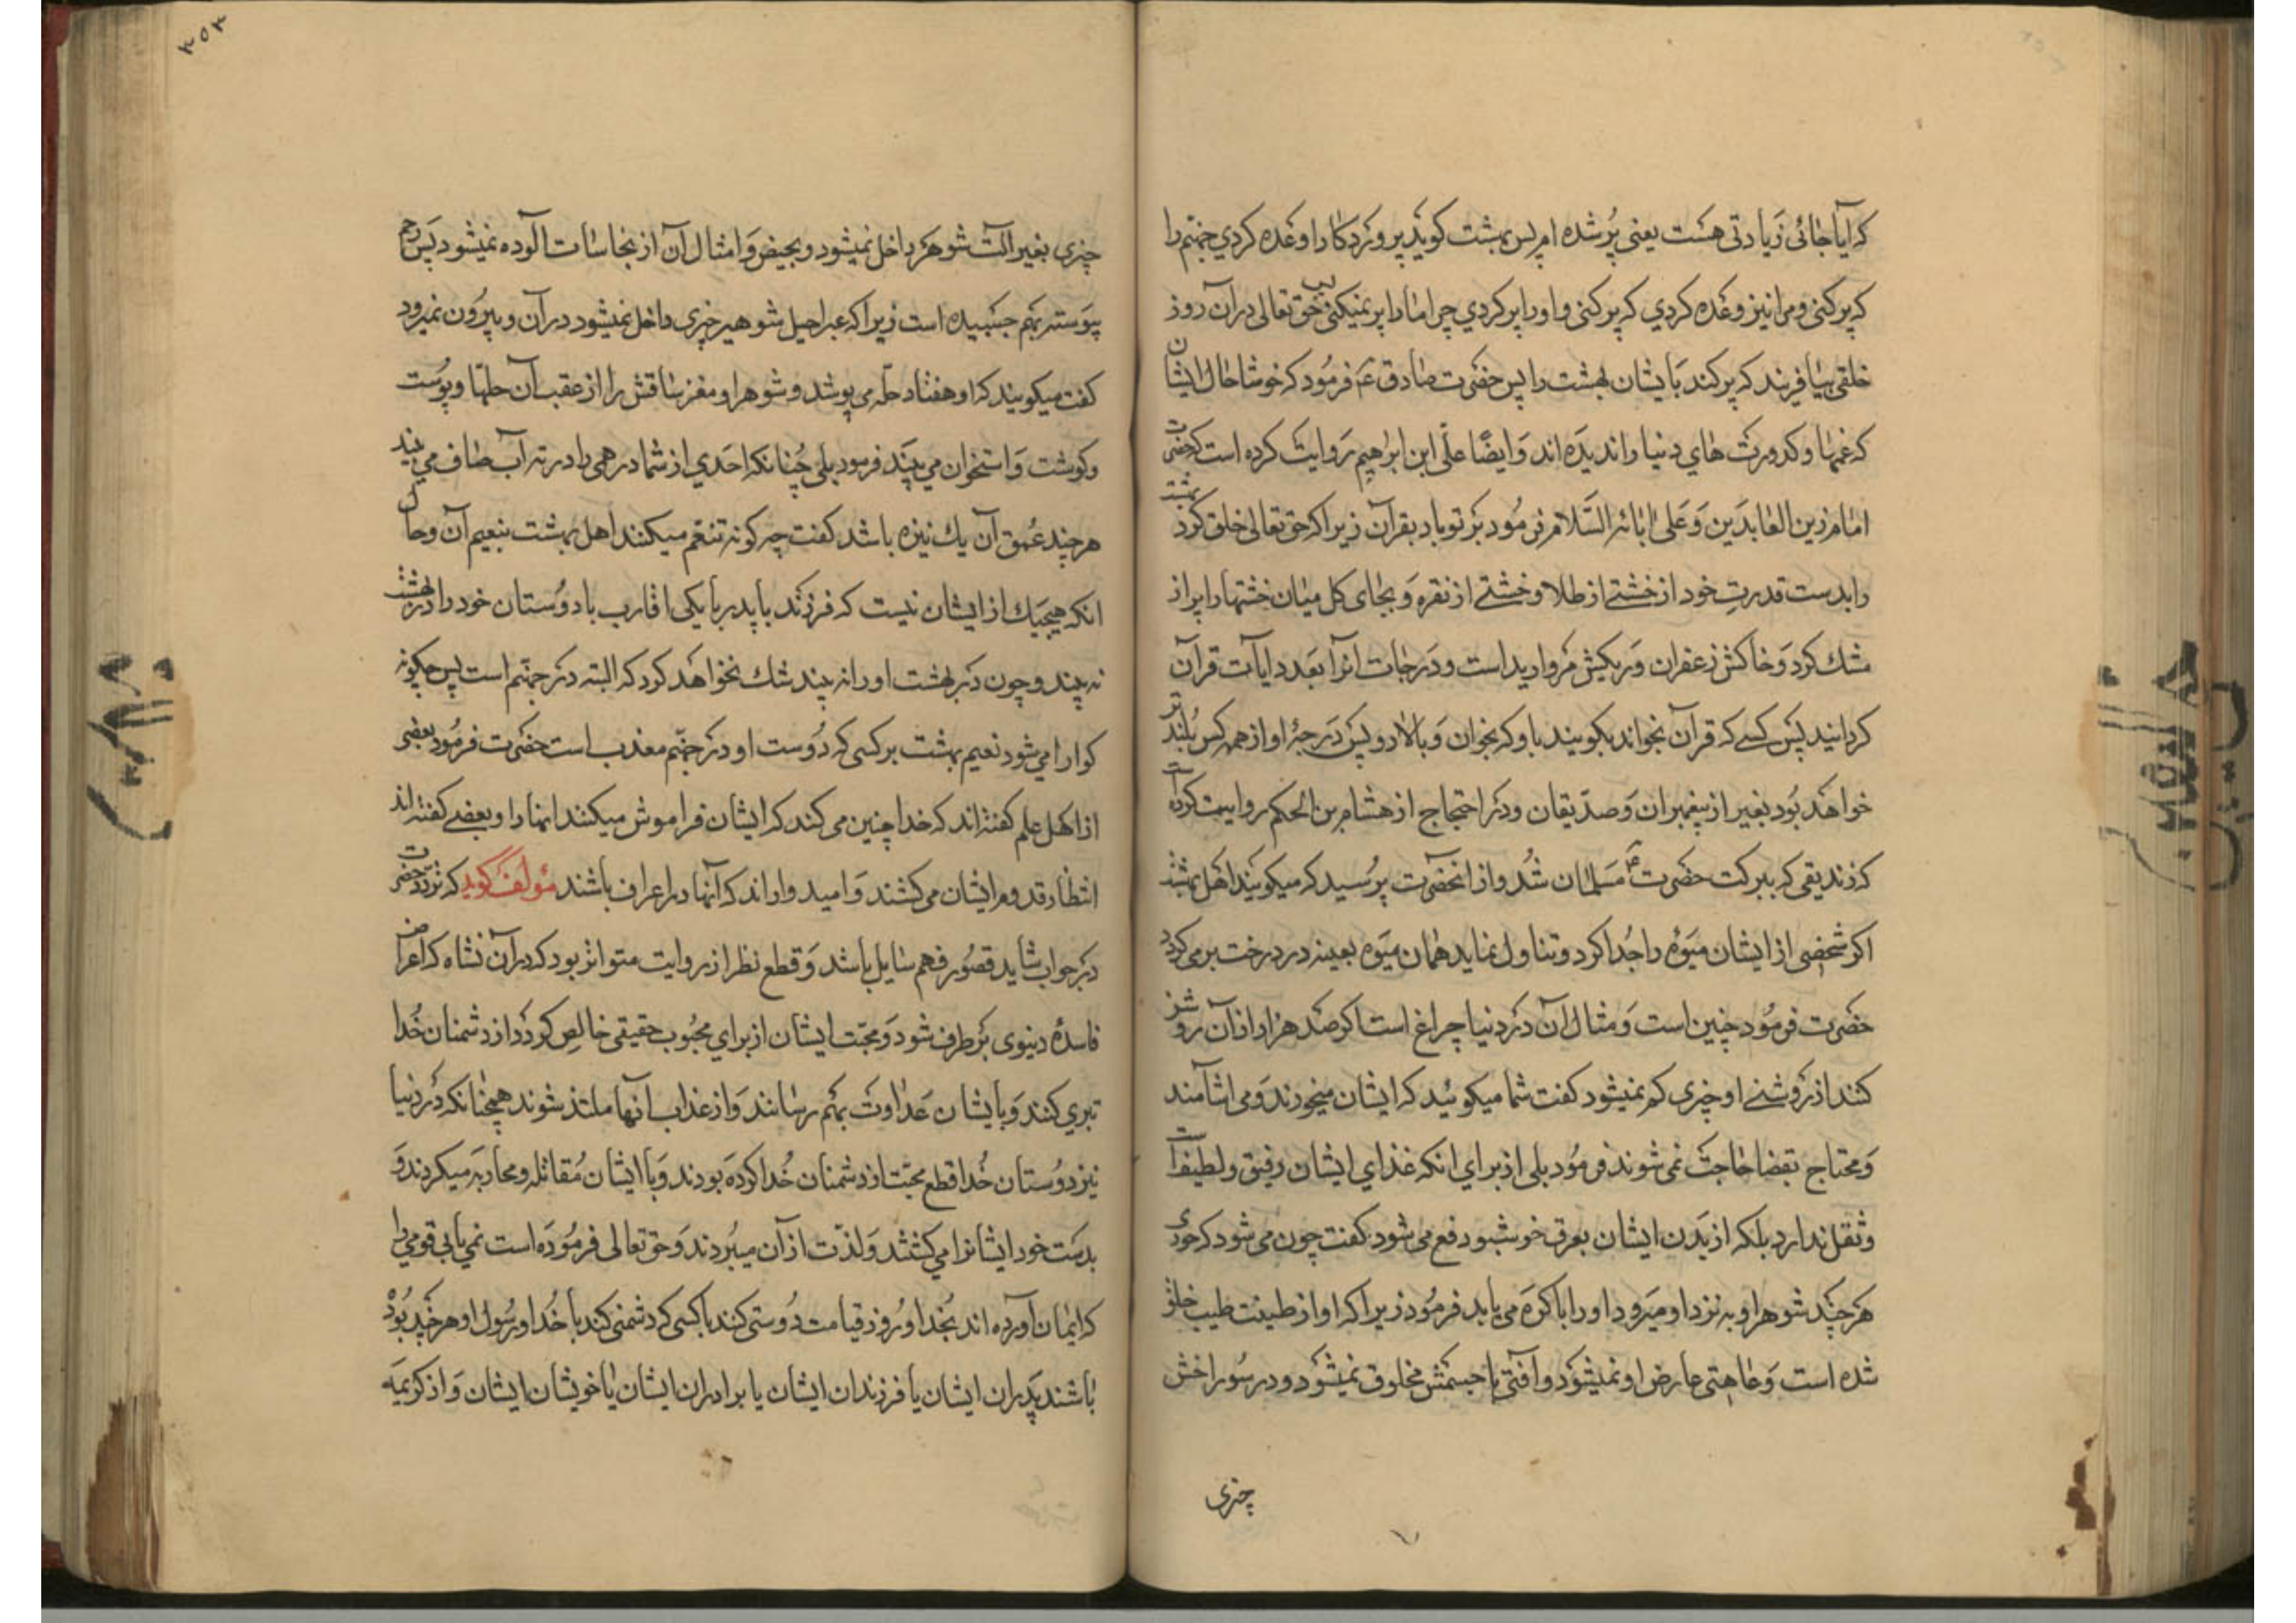 که آیا جائی زیادتی هست یعنی پُر شده ام پس بهشت کوید پروردکارا وعده کردي جهنم را
که پر کنی و مرا نیز وعده کردي که پر کنی و او را پر کردي چرا ما را پر نمیکنی پس حق تعالی در آن روز
خلقی بیافریند که پر کند بایشان بهشت را پس حضرت صادق ع فرمود که خوشا حال ایشان
که غمها و کدورت هاي دنیا را ندیده اند وَ ایضًا علی ابن ابراهیم روایت کرده است که حضرت
امام زین العابدین وَ عَلی ابائه السَّلام فرمُود بر تو باد بقرآن زیرا که حق تعالی خلق کرد بهشت
را بدست قدرت خود از خشتے از طلا و خشتے از نقره وَ بجای کل میان خشتها را پر از
مشك کرد وَ خاکش زعفران وَ ریکش مروارید است و دَرجات انرا بعدد ایات قرآن
کردانید پس کسے که قرآن بخواند بکویند باو که بخوان وَ بالا رو پس دَرجهٔ او از همه کس بُلند تر
خواهد بُود بغیر از پیغمبران وَ صدّیقان و در احتجاج از هشام بن الحکم روایت کرده است
که زندیقی که ببرکت حضرت ع مسلمان شُد و از انحضرت پرُسید که میکویند اهل بهشت
اکر شخصی از ایشان میوهٔ را جُدا کرد و تناول نماید همان میوه بعینه در درخت بر می کردد
حضرت فرمُود چنین است وَ مثال آن در دنیا چراغ است اکر صد هزار از آن روشن
کنند از روشنے او چیزی کم نمیشود کفت شما میکوئید که ایشان میخورند وَ می اشامند
وَ محتاج بقضا حاجت نمی شوند فرمُود بلی از براي انکه غذاي ایشان رقیق و لطیف است
و ثقل ندارد بلکه از بَدن ایشان بعرق خوشبو دفع می شود کفت چون می شود که حوری
هر چند شوهر او به نزد او میرود او را باکره می یابد فرمُود زیرا که او از طینت طیب خلق
شده است وَ عاهتی عارض او نمیشود و آفتی با جسمش مخلوق نمیشود و در سوراخش
چیزی
۳۵۳
چیزی بغیر الت شوهر داخل نمیشود و بحیض وَ امثال آن از نجاسات الوده نمیشود پس رحم
پیوسته بهم چسبیده است زیرا که غیر احیل شوهر چیزی داخل نمیشود در آن و بیرُون نمیرود
کفت میکویند که او هفتاد حلّه می پوشد و شوهر او مغز ساقش را از عقب آن حلها و پُوست
و کوشت وَ استخوان مي بیند فرمود بلی چنانکه احدي از شما درهمی را در ته آب صاف می بیند
هر چند عُمق آن یك نیزه باشد کفت چه کونه تنعّم میکنند اهل بهشت بنعیم آن و حال
انکه هیچیك از ایشان نیست که فرزند یا پدر یا یکی اقارب یا دوستان خود را در بهشت
نه بیند و چون در بهشت او را نه بیند شك نخواهد کرد که البته در جهنّم است پس چکونه
کوارا می شود نعیم بهشت بر کسی که دُوست او در جهنّم معذب است حضرت فرمُود بعضی
از اهل علم کفته اند که خدا چنین می کند که ایشان فراموش میکنند انها را و بعضے کفته اند
انتظار قدوم ایشان می کشند وَ امید وار اند که آنها در اعراف باشند مؤلف کوید که تردد حضرت
در جواب شاید قصُور فهم سایل باشد وَ قطع نظر از روایت متواتر بود که در آن نشاه که اعراض
فاسدهٔ دنیوی بر طرف شود وَ محبّت ایشان از براي محبُوب حقیقی خالص کردد و از دشمنان خُدا
تبري کنند وَ بایشان عَداوت بهم رسانند وَ از عذاب انها ملتذ شوند همچنانکه در دنیا
نیز دوُستان خُدا قطع محبّت از دشمنان خُدا کرده بودند وَ با ایشان مُقاتله و محاربه میکردند وَ
بدست خود ایشانرا مي کشتند وَ لذّت از آن میبُردند وَ حق تعالی فرمُوده است نمي یابی قومي را
که ایمان آورده اند بُخدا و رُوز قیامت دوُستی کنند با کسی که دشمنی کند با خُدا و رسُول او هر چند بُوده
باشند پدران ایشان یا فرزندان ایشان یا برادران ایشان یا خویشان ایشان وَ از کریمه